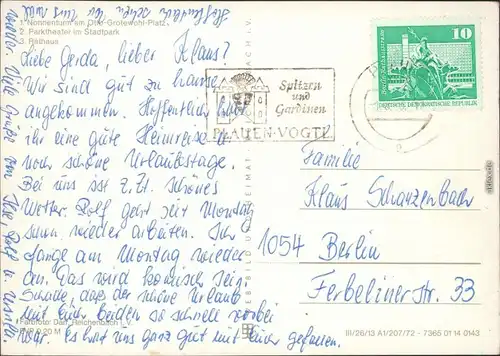 1. Nonnenturm am Otto-Grotewohl-Platz
2. Parktheater im Stadtpark
3. Rathaus
Liebe Gerda, lieber Klaus!
Wir sind gut zu Hause
angekommen. Hoffentlich hattet
ihr eine gute Heimreise u.
noch schöne Urlaubstage.
Bei uns ist z.Zt. schönes
Wetter. Rolf geht seit Montag
schon wieder arbeiten. Ich
fange am Montag wieder
an. Das wird komisch sein
Schade, dass der schöne Urlaub
mit euch beiden so schnell vorbei
war. Es hat uns ganz gut mit euch gefallen.
Hoffentlich sehen wir uns mal
wieder. Viele Grüße von Ilse, Rolf u.
Farbfoto: Darr, Reichenbach i. V.
EVP 0,20 M
BILD UND HEIMAT REICHENBACH I. V.
Spitzen
und
Gardinen
PLAUEN-VOGTL
10
DEUTSCHE DEMOKRATISCHE REPUBLIK
Familie
Klaus Scharzenbach
1054 Berlin
Ferbelinerstr. 33
III/26/13 A1/207/72 - 7365 01 14 0143